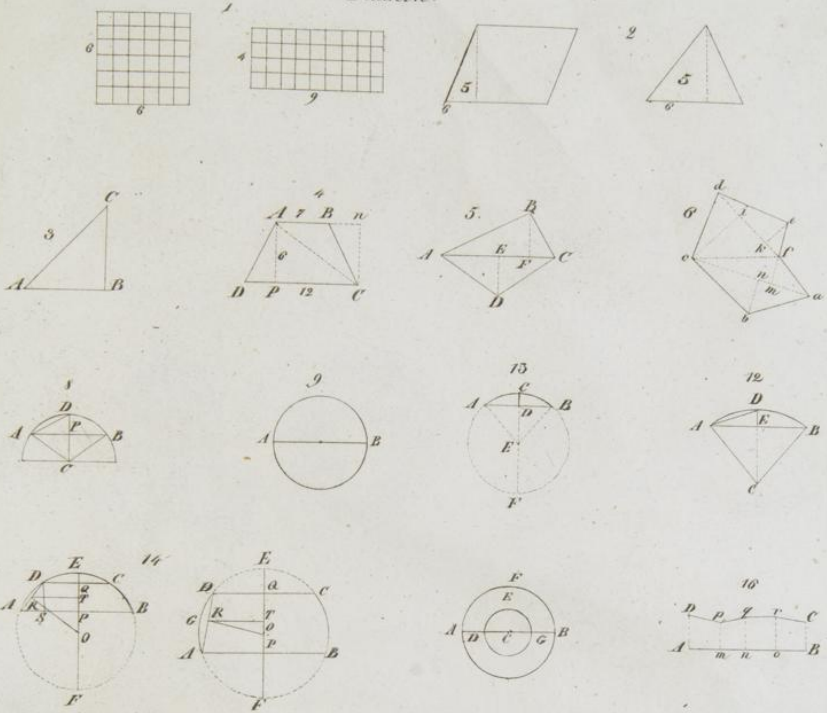 1
6
6
4
9
5
6
2
5
6
3
C
A
B
4
A 7 B n
6
D P 12 C
5.
B
A
E
F
C
D
6
d
i
e
c
k
f
n
m
a
b
8
D
A
P
B
C
9
A
B
13
C
A
D
B
E
F
12
D
A
E
B
C
14
E
D
C
Q
T
A
R
S
P
B
O
F
E
D
Q
C
G
R
T
O
P
A
B
F
F
E
A
D
C
G
B
16
D
P
q
r
C
A
m
n
o
B